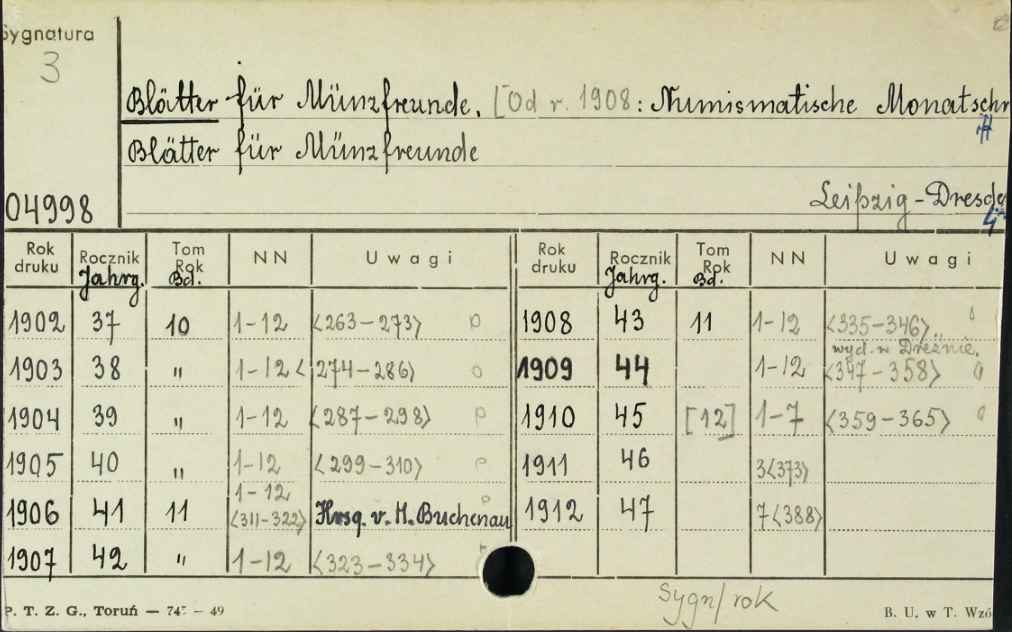 Sygnatura
3
Blätter für Münzfreunde. [Od r. 1908: Numismatische Monatschr
Blätter für Münzfreunde
Leipzig-Dresde
04998
Rok druku Rocznik Jahrg. Tom Rok Bd. NN Uwagi Rok druku Rocznik Jahrg. Tom Rok Bd. NN Uwagi
1902 37 10 1-12 <263-273> 1908 43 11 1-12 <335-346>
wyd. w Dreźnie.
1903 38 " 1-12 <274-286> 1909 44 1-12 <347-358>
1904 39 " 1-12 <287-298> 1910 45 [12] 1-7 <359-365>
1905 40 " 1-12 <299-310> 1911 46 3<373>
1906 41 11 1-12 <311-322> Hrsg. v. H. Buchenau 1912 47 7<388>
1907 42 " 1-12 <323-334>
Sygn/rok
P. T. Z. G., Toruń — 745 — 49 B. U. w T. Wzó